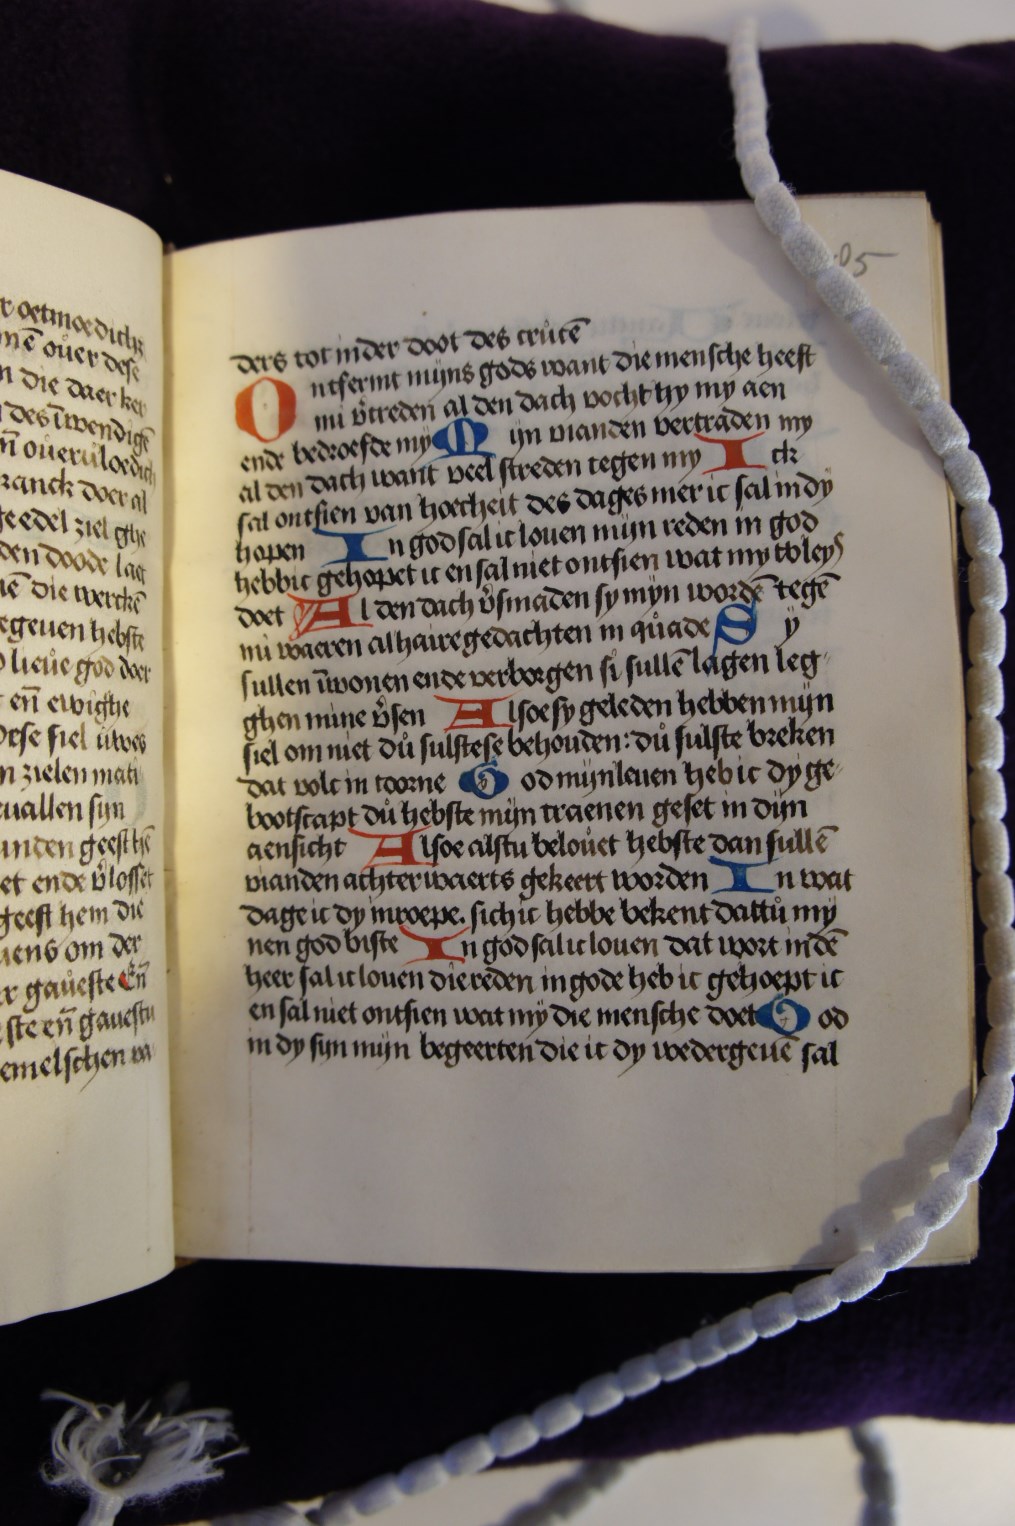 r oetmoedichz
mē ouer dese
n die daer ker
des ūwendigē
n̄ oueruloedich
ranck doer al
ge edel ziel ghe
den doode lag
uē die wercken
egeuen hebste
lieue god doer
t en̄ ewighe
Dese siel uwes
n zielen mati
euallen syn
unden geest hē
et ende v̓losset
geest hem die
uens om der
er gaueste En̄
ste en̄ gauestu
emelschen va
05
ders tot in der doot des crucē
Ontfermt myns gods want die mensche heeft
mi v̓treden al den dach vocht hy my aen
ende bedroefde my Myn vianden vertraden my
al den dach want veel streden tegen my Ick
sal ontsien van hoecheit des dages mer ic sal in dy
hopen In god sal ic louen mijn reden in god
heb ic gehopet ic en sal niet ontsien wat my tvleys
doet Al den dach v̓smaden sy myn wordē tegē
mi waeren al haire gedachten in quade Sy
sullen ūwonen ende verborgen si sullē lagen leg
ghen mine v̓sen Alsoe sy geleden hebben mijn
siel om niet du sulstese behouden: du sulste breken
dat volc in toorne God mijn leuen heb ic dy ge
bootscapt du hebste mijn traenen geset in dijn
aensicht Alsoe alstu belouet hebste dan sullē
vianden achterwaerts gekeert worden In wat
dage ic dy inroepe. sich ic hebbe bekent dattu my
nen god biste In god sal ic louen dat wort in dē
heer sal ic louen die reden in gode heb ic gehoept ic
en sal niet ontsien wat my die mensche doet God
in dy syn mijn begeerten die ic dy wedergeuē sal